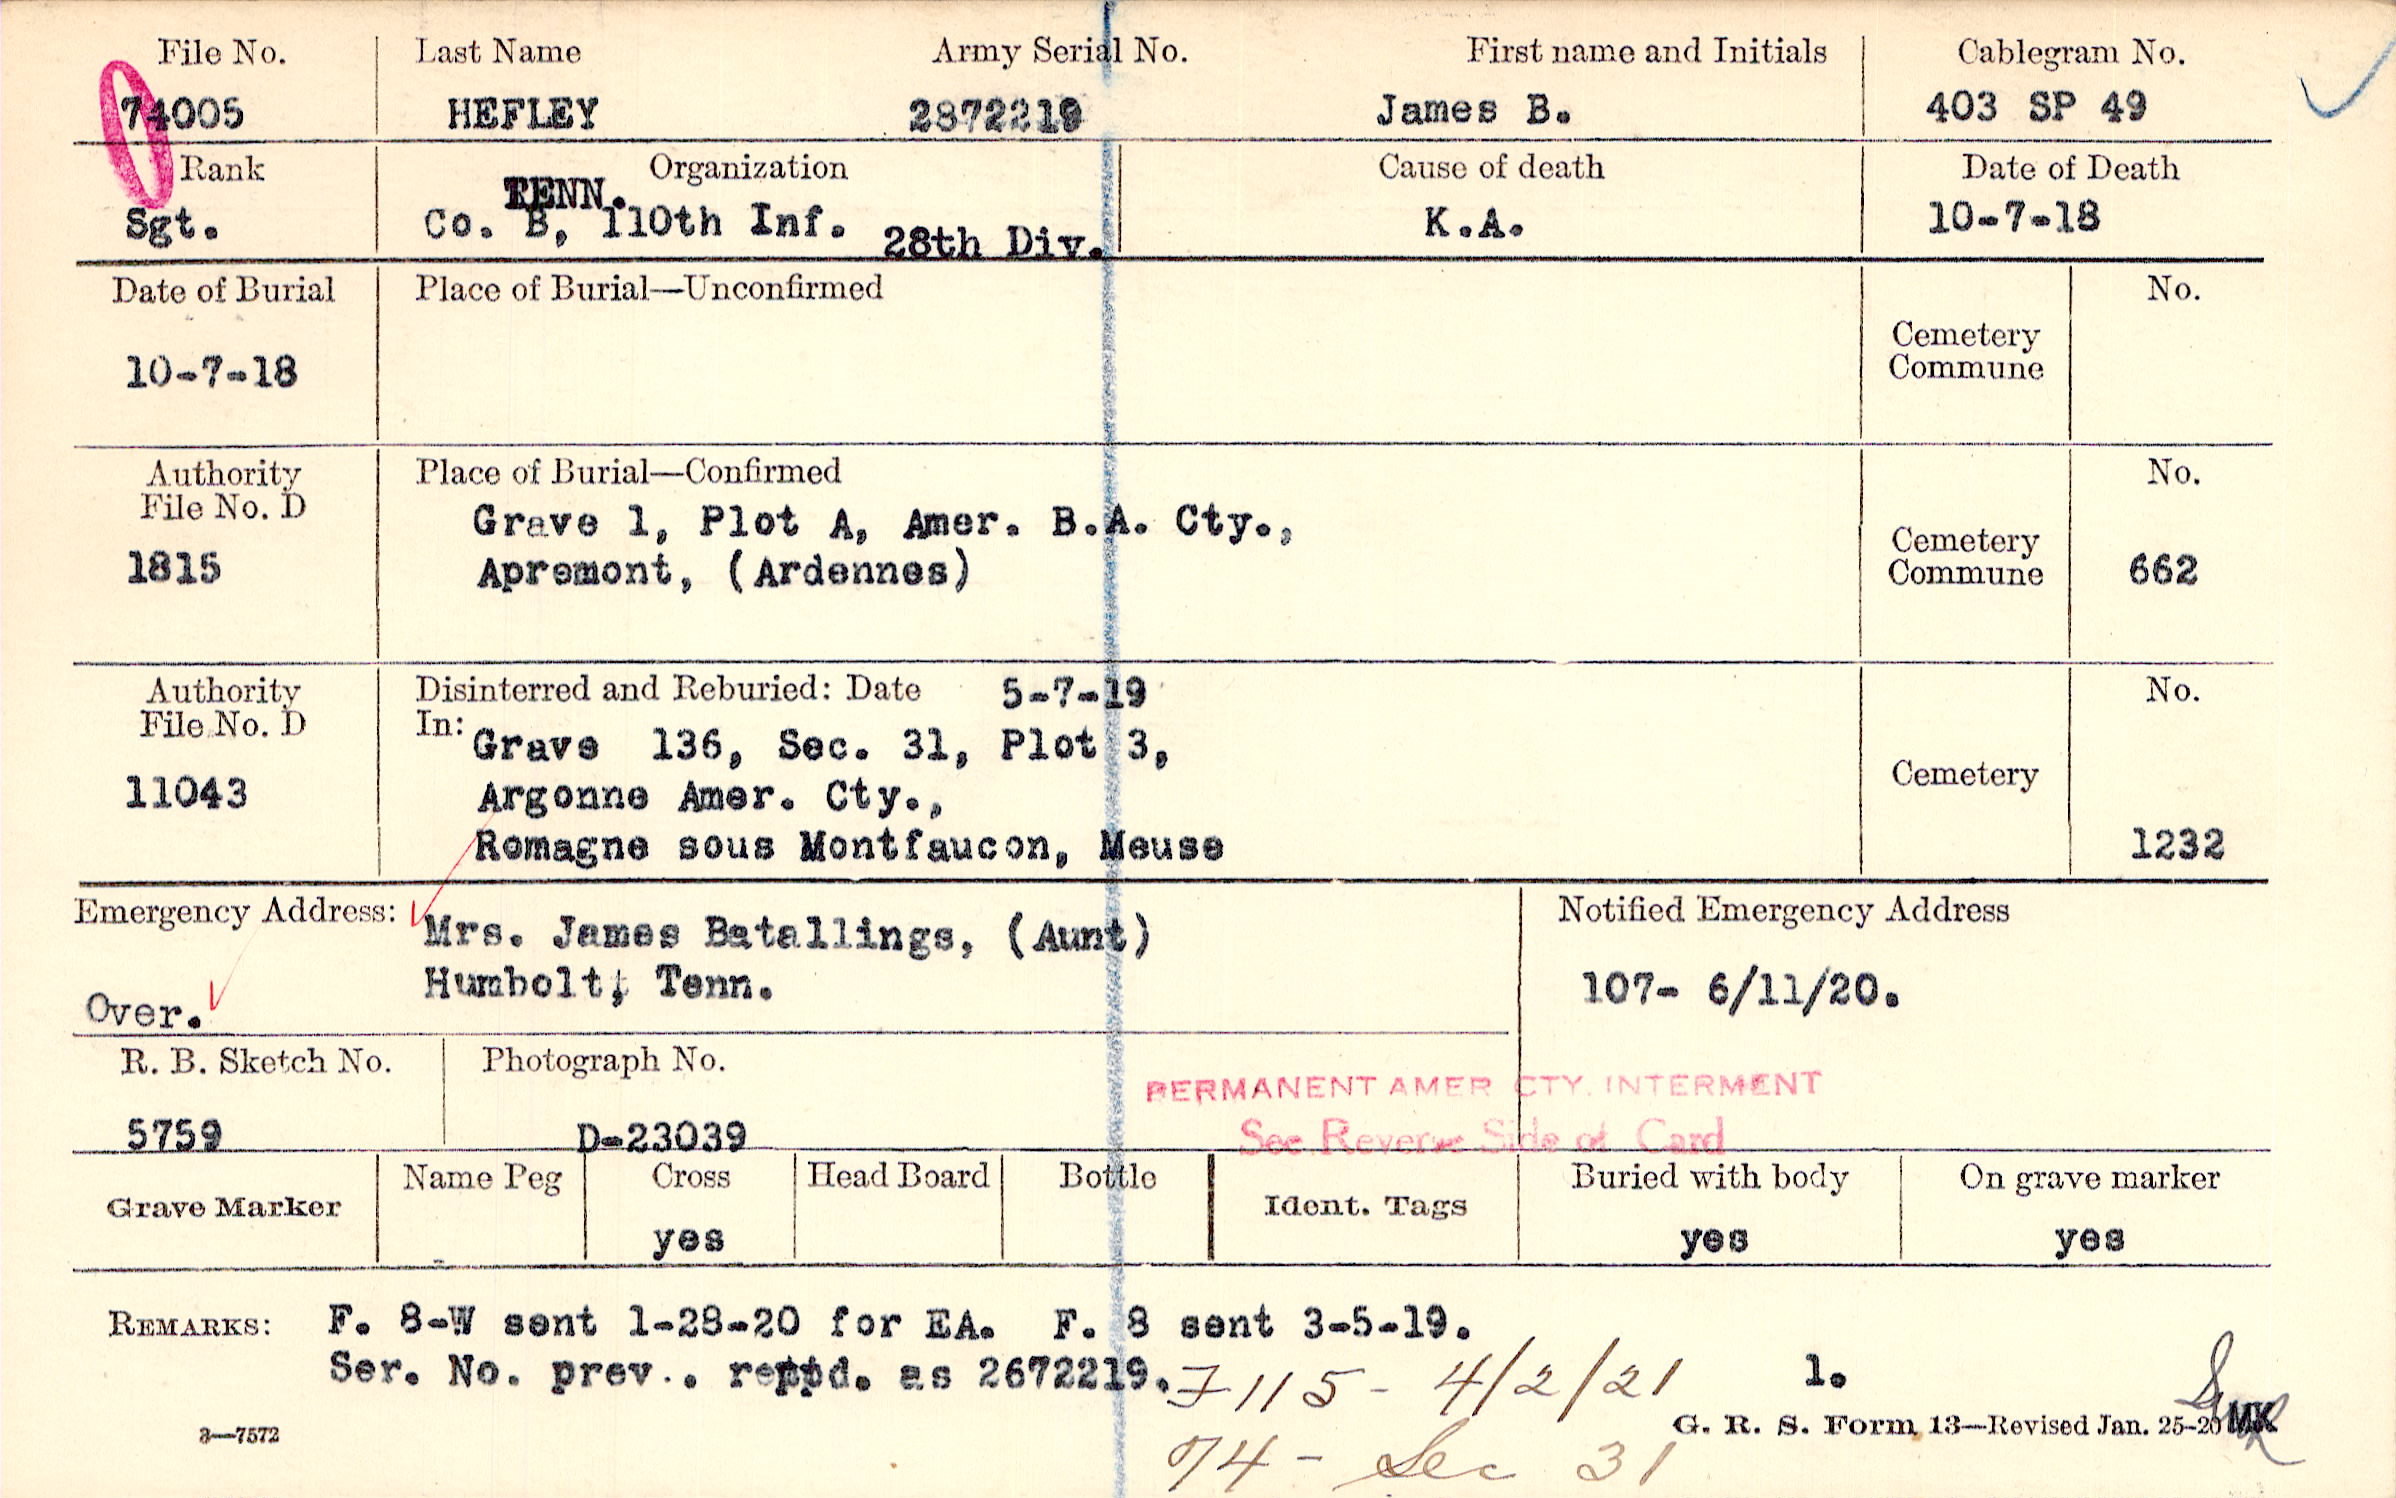 File No. Last Name Army Serial No. First name and Initials Cablegram No.
74005 HEFLEY 2872219 James B. 403 SP 49
Rank Organization Cause of death Date of Death
TENN.
Sgt. Co. B, 110th Inf. 28th Div. K.A. 10-7-18
Date of Burial Place of Burial—Unconfirmed No.
Cemetery
Commune
10-7-18
Authority Place of Burial—Confirmed No.
File No. D
Grave 1, Plot A, Amer. B.A. Cty.,
1815 Apremont, (Ardennes) Cemetery
Commune 662
Authority Disinterred and Reburied: Date 5-7-19 No.
File No. D In: Grave 136, Sec. 31, Plot 3,
11043 Argonne Amer. Cty., Cemetery
Romagne sous Montfaucon, Meuse 1232
Emergency Address: Mrs. James Batallings, (Aunt) Notified Emergency Address
Over. Humbolt, Tenn. 107- 6/11/20.
R. B. Sketch No. Photograph No.
PERMANENT AMER CTY. INTERMENT
5759 D-23039 See Reverse Side of Card
Grave Marker Name Peg Cross Head Board Bottle Ident. Tags Buried with body On grave marker
yes yes yes
REMARKS: F. 8-W sent 1-28-20 for EA. F. 8 sent 3-5-19.
Ser. No. prev.. reptd. as 2672219. F 115 - 4/2/21 1.
3—7572 G. R. S. Form 13—Revised Jan. 25-20 MK
74 - Sec 31